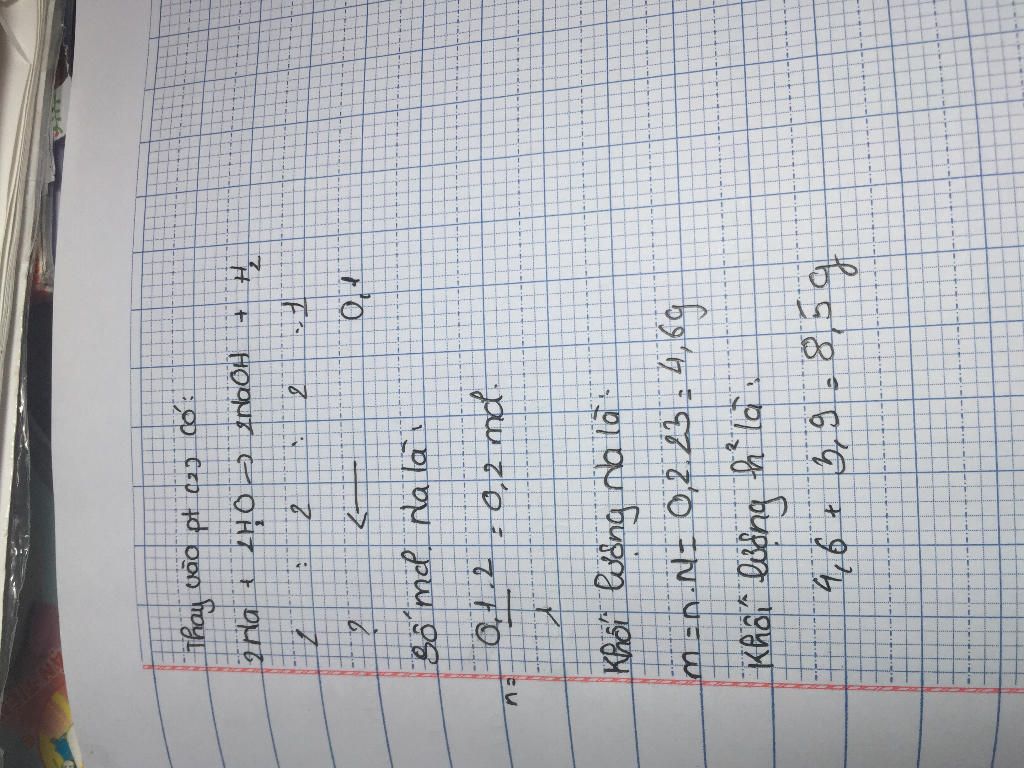 Thay vào pt (2) có:
2Na + 2H₂O → 2NaOH + H₂
2 : 2 : 2 : 1
? ← 0,1
Số mol Na là:
n = 0,1.2 / 1 = 0,2 mol.
Khối lượng Na là:
m = n.N = 0,2.23 = 4,6g
Khối lượng h² là:
4,6 + 3,9 = 8,5 g